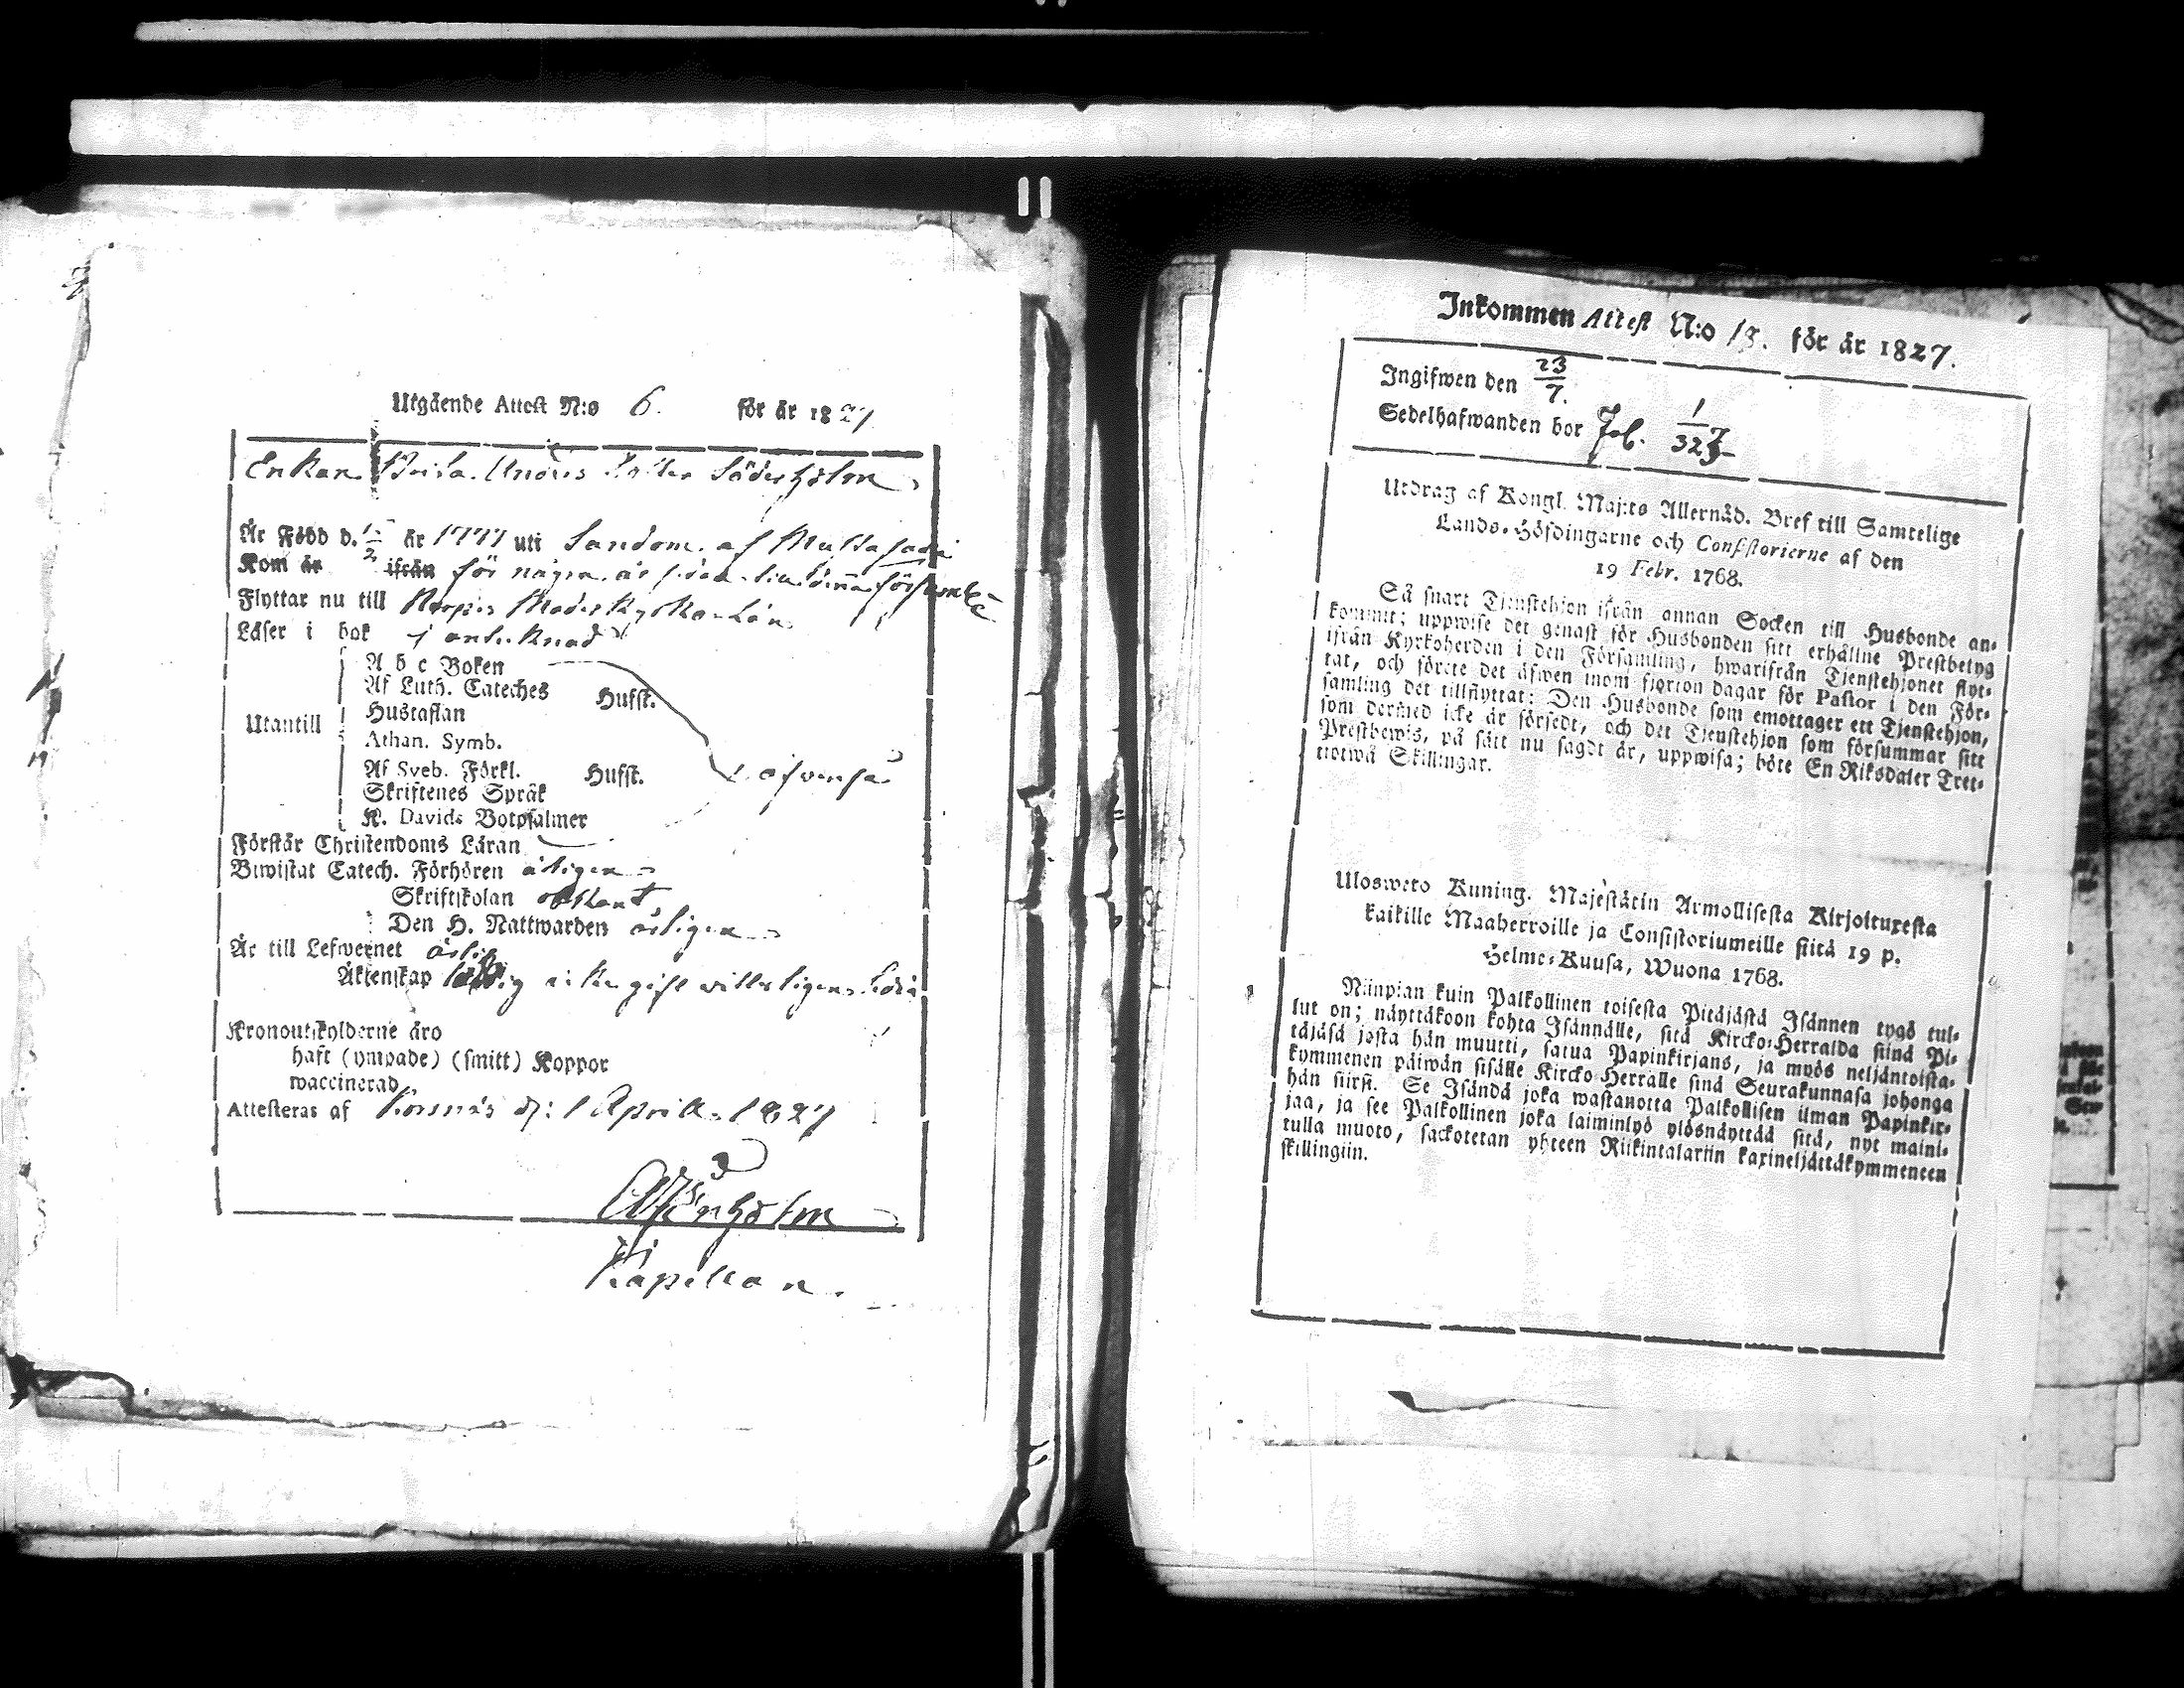 Utgående Attest N:o 6. för år 1827
Enkan Brita Anders Dotter Söderholm
Är Född d. 1/2 år 1777 uti Sandom. af Mustasaari
Kom år ifrån för några år sedan till denna församl.
Flyttar nu till Moderkyrkan
Läser i bok
Utantill
A b c Boken
Af Luth. Cateches Hufst.
Hustaflan
Athan. Symb.
Af Sveb. Förkl. Hufst.
Skriftenes Språk
K. Davids Botpsalmer
Förstår Christendoms Läran
Biwistat Catech. Förhören årligen
Skriftskolan
Den H. Nattwarden årligen
Är till Lefwernet
Äktenskap ledig
Kronoutskylderne äro
haft (ympade) (smitt) Koppor
waccinerad
Attesteras af Korsnäs d: 1 April 1827
Kapellan.
Inkommen Attest N:o 18. för år 1827.
Ingifwen den 23/7.
Sedelhafwanden bor Fol. 1/327
Utdrag af Kongl. Maj:ts Allernåd. Bref till Samtelige
Lands-Höfdingarne och Consistorierne af den
19 Febr. 1768.
Så snart Tjenstehjon ifrån annan Socken till Husbonde an-
kommit; uppwise det genast för Husbonden sitt erhållne Prestbetyg
ifrån Kyrkoherden i den Församling, hwarifrån Tjenstehjonet flyt-
tat, och förete det äfwen inom fjorton dagar för Pastor i den För-
samling det tillflyttat: Den Husbonde som emottager ett Tjenstehjon,
som dermed icke är försedt, och det Tjenstehjon som försummar sitt
Prestbewis, på sätt nu sagdt är, uppwisa; böte En Riksdaler Tret-
tiotwå Skillingar.
Ulosweto Kuning. Majestätin Armollisesta Kirjoituxesta
kaikille Maaherroille ja Consistoriumeille siitä 19 p.
Helme-Kuusa, Wuona 1768.
Niinpian kuin Palkollinen toisesta Pitäjästä Isännen tygö tul-
lut on; näyttäkoon kohta Isännälle, sitä Kircko-Herralda siinä Pi-
täjäsä josta hän muutti, saatua Papinkirjans, ja myös neljäntoista-
kymmenen päiwän sisälle Kircko-Herralle siinä Seurakunnasa johonga
hän siirsi. Se Isändä joka wastanotta Palkollisen ilman Papinkir-
jaa, ja see Palkollinen joka laiminlyö ylösnäyttää sitä, nyt maini-
tulla muoto, sackotetan yhteen Riikintalariin kaxineljättäkymmeneen
skillingiin.